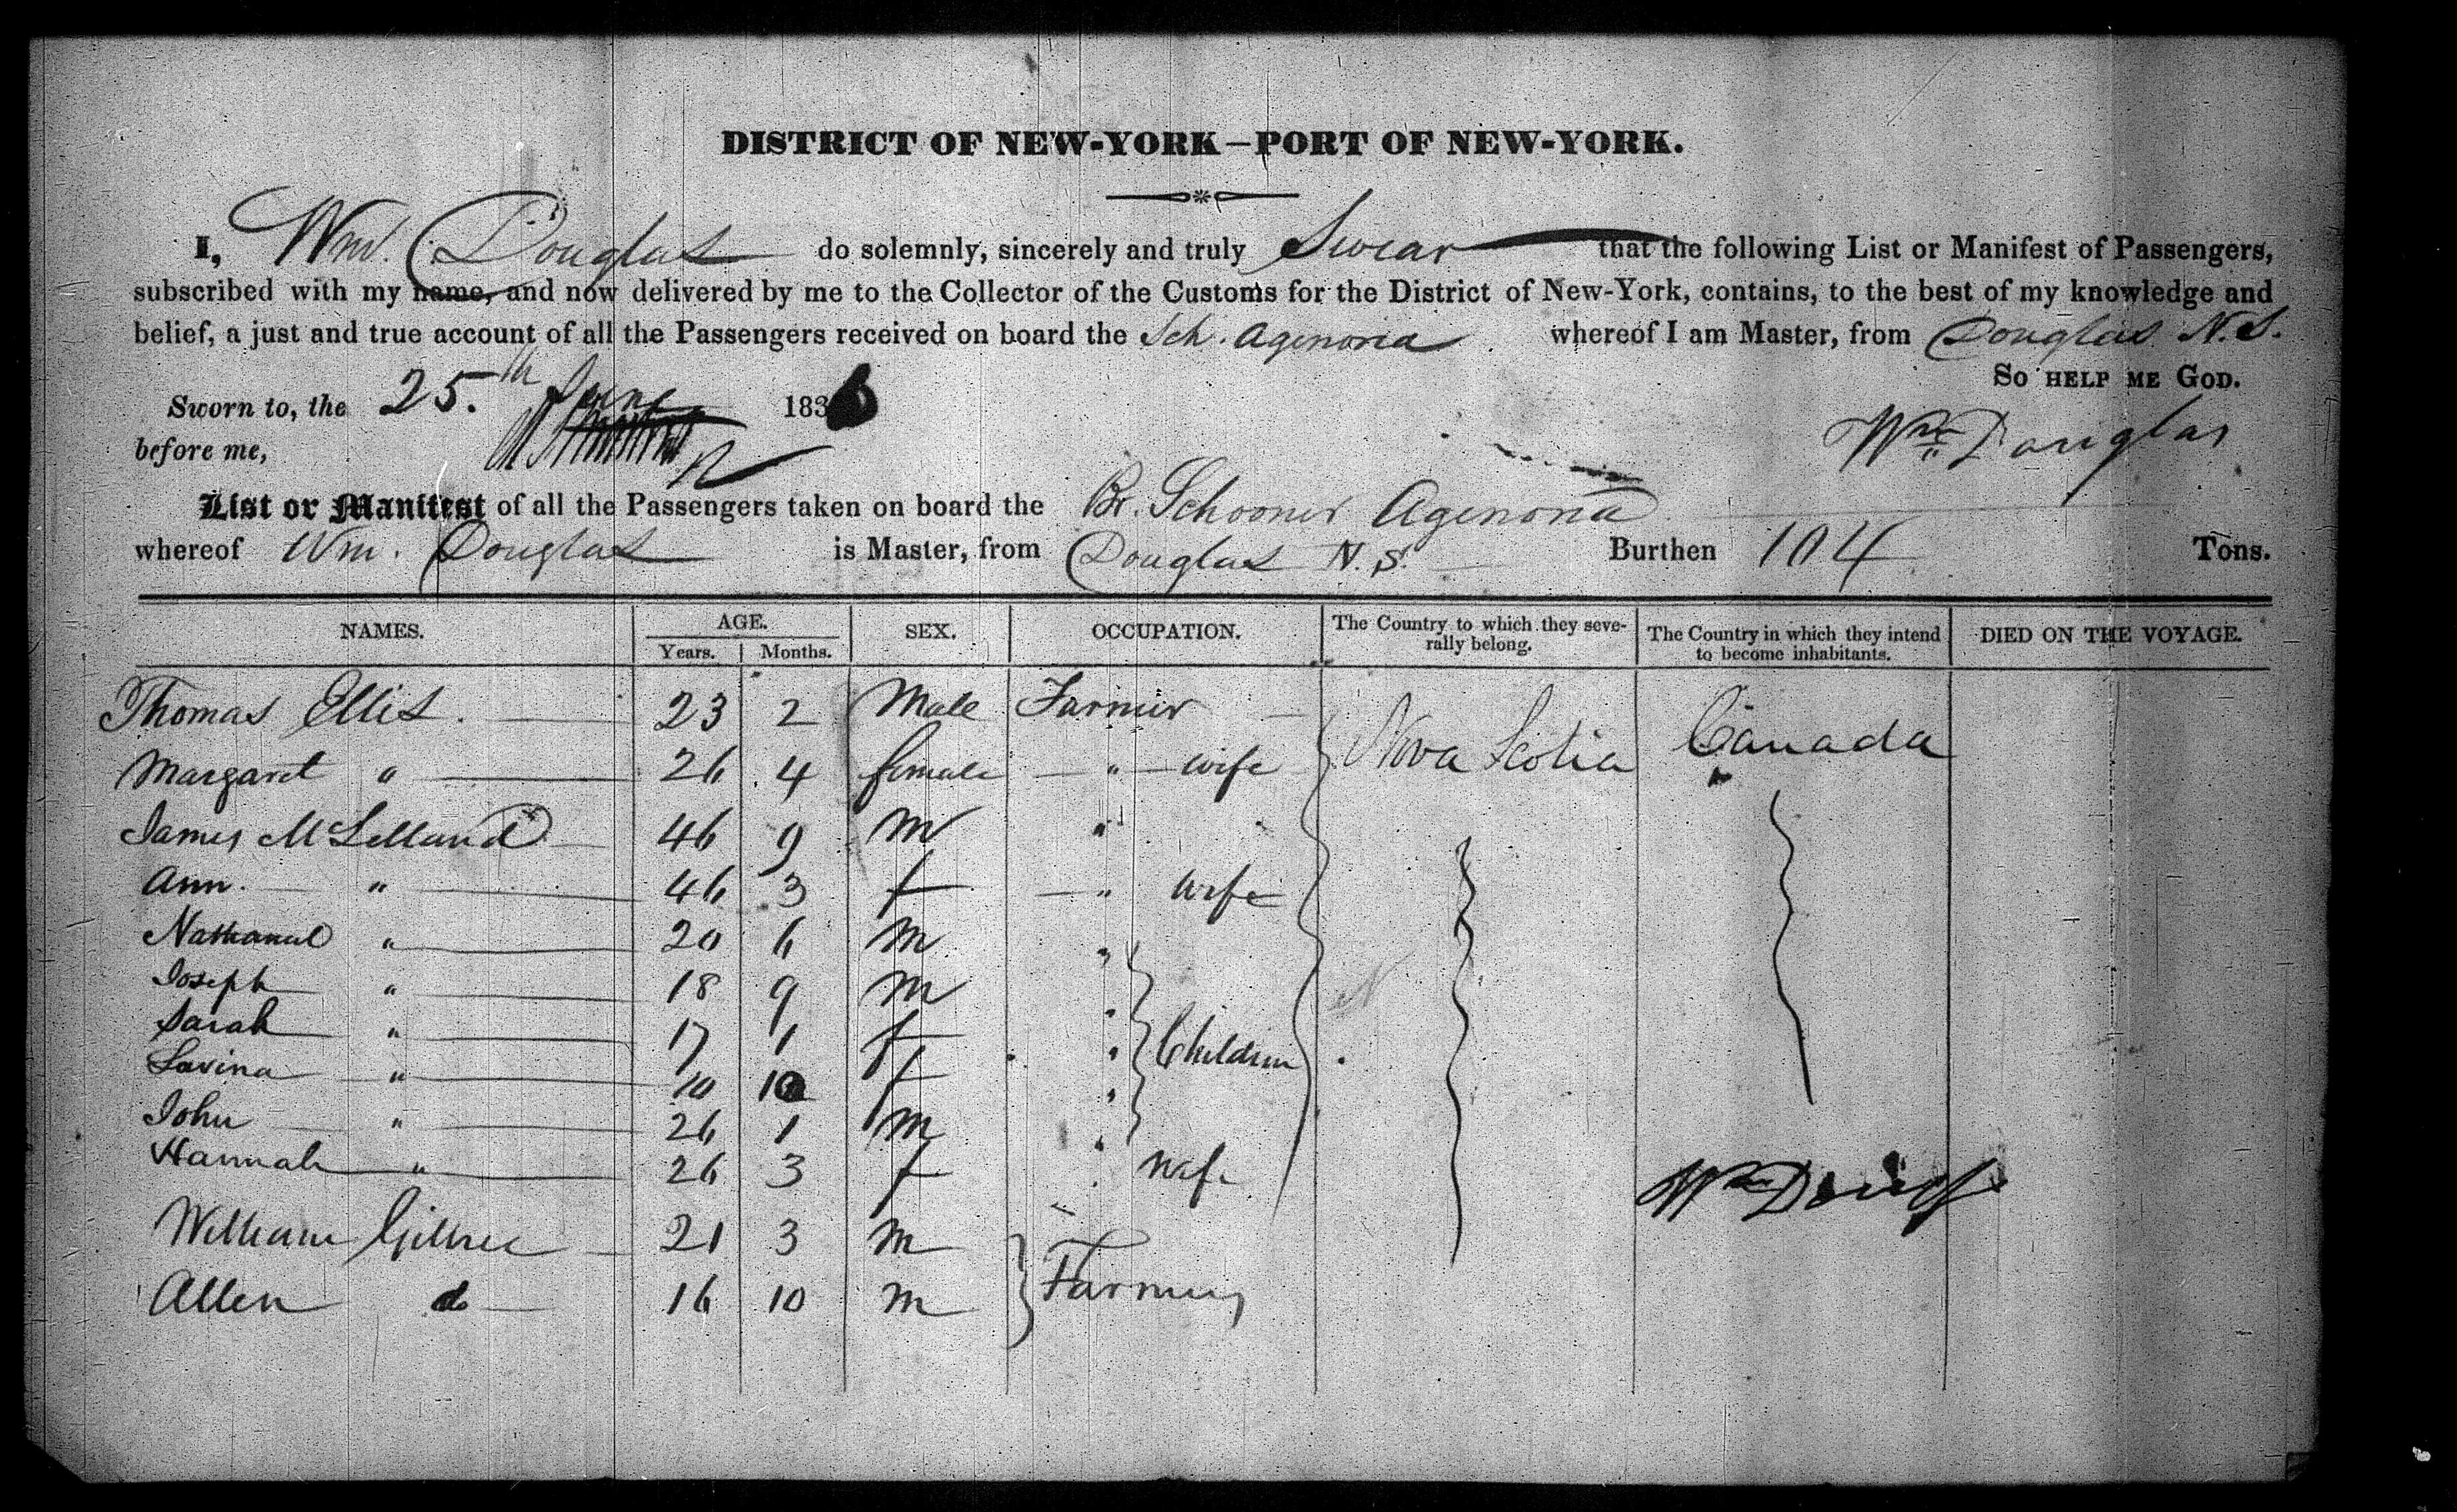 DISTRICT OF NEW-YORK—PORT OF NEW-YORK.
I, Wm. Douglas do solemnly, sincerely and truly Swear that the following List or Manifest of Passengers,
subscribed with my name, and now delivered by me to the Collector of the Customs for the District of New-York, contains, to the best of my knowledge and
belief, a just and true account of all the Passengers received on board the Sch. Agenoria whereof I am Master, from Douglas N.S.
So HELP ME GOD.
Sworn to, the 25th June 1836
before me,
Wm Douglas
List or Manifest of all the Passengers taken on board the Br. Schooner Agenoria
whereof Wm. Douglas is Master, from Douglas N.S. Burthen 104 Tons.
NAMES. AGE. SEX. OCCUPATION. The Country to which they seve-rally belong. The Country in which they intend to become inhabitants. DIED ON THE VOYAGE.
Years. Months.
Thomas Ellis. 23 2 Male Farmer Nova Scotia Canada
Margaret " 26 4 female " wife
James McLelland 46 9 m "
Ann. " 46 3 f " wife
Nathanul " 20 6 m "
Joseph " 18 9 m "
Sarah " 17 1 f " Children
Lavina " 10 10 f "
John " 26 1 m "
Hannah " 26 3 f " wife
Wm Doug
William 21 3 m Farmers
Allen do 16 10 m